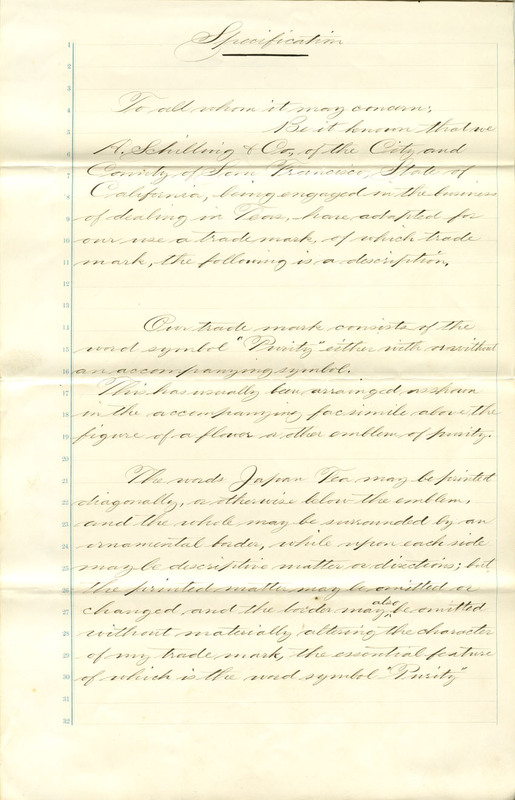 Specification
1
2
3
4 To all whom it may concern;
5 Be it known that we
6 A. Schilling & Co, of the City and
7 County of San Francisco, State of
8 California, being engaged in the business
9 of dealing in Teas, have adopted for
10 our use a trade mark, of which trade
11 mark, the following is a description,
12
13
14 Our trade mark consists of the
15 word symbol "Purity" either with or without
16 an accompanying symbol.
17 This has usually been arrainged as shown
18 in the accompanying facsimile above the
19 figure of a flower or other emblem of purity.
20
21 The words Japan Tea may be printed
22 diagonally, or otherwise below the emblem,
23 and the whole may be surrounded by an
24 ornamental border, while upon each side
25 may be descriptive matter or directions; but
26 the printed matter may be omitted or
27 changed and the border may also be omitted
28 without materially altering the character
29 of my trade mark, the essential feature
30 of which is the word symbol "Purity"
31
32